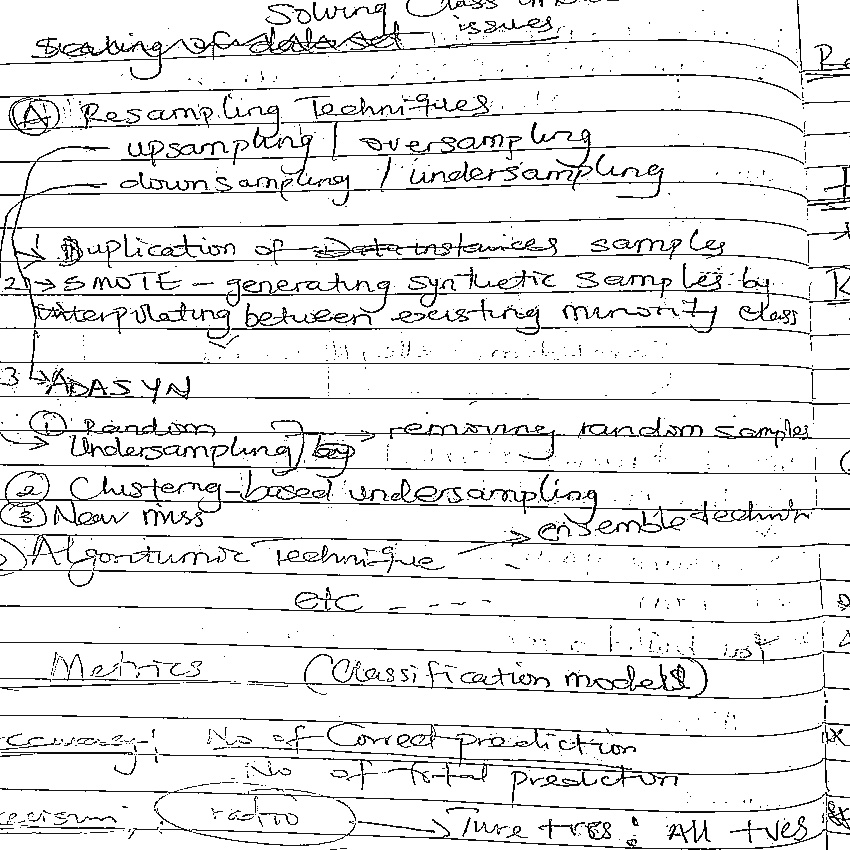 Solving Class
issues
Scaling of dataset
(A) Resampling Techniques
— upsampling / oversampling
— downsampling / undersampling
Duplication of Data instances samples
2 → SMOTE – generating synthetic samples by
interpolating between existing minority class
3 → ADASYN
① Random
Undersampling → removing random samples
by
② Clusterng-based undersampling
③ Near miss
Algorithmic Technique → ensemble
etc - - - -
Metrics (Classification models)
No of Correct prediction
No of total prediction
ratio → True +ves : All +ves